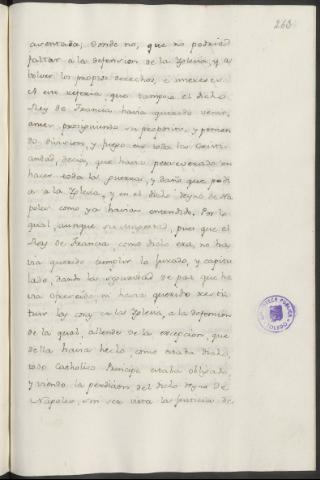 263
aventadas; donde no, que no podria
faltar a la defension de la Yglesia, y a
bolver los propios derechos, e intereses.
A un referia que tampoco el dicho
Rey de Francia havia querido venir,
antes prosiguiendo su proposito, y poniendo
division, y fuego en toda la Christi
andad, decia, que havia perseverado en
hacer toda la guerra, y daño que podi
a a la Yglesia, y en el dicho Reyno de Na
poles como ya havian entendido. Por lo
qual, aunque su Magestad, pues que el
Rey de Francia, como dicho era, no ha
via querido cumplir lo jurado, y capitu
lado, dando la seguridad de paz que ha
via ofrecido, ni havia querido resti
tuir las cosas a la Yglesia, a la defension
de la qual, allende de la excepcion, que
della havia hecho, como estaba dicho,
todo Catholico Principe estaba obligado,
y viendo la perdicion del dicho Reyno de
Napoles, sin ser vista la justicia de
BIBLIOTECA PUBLICA
TOLEDO